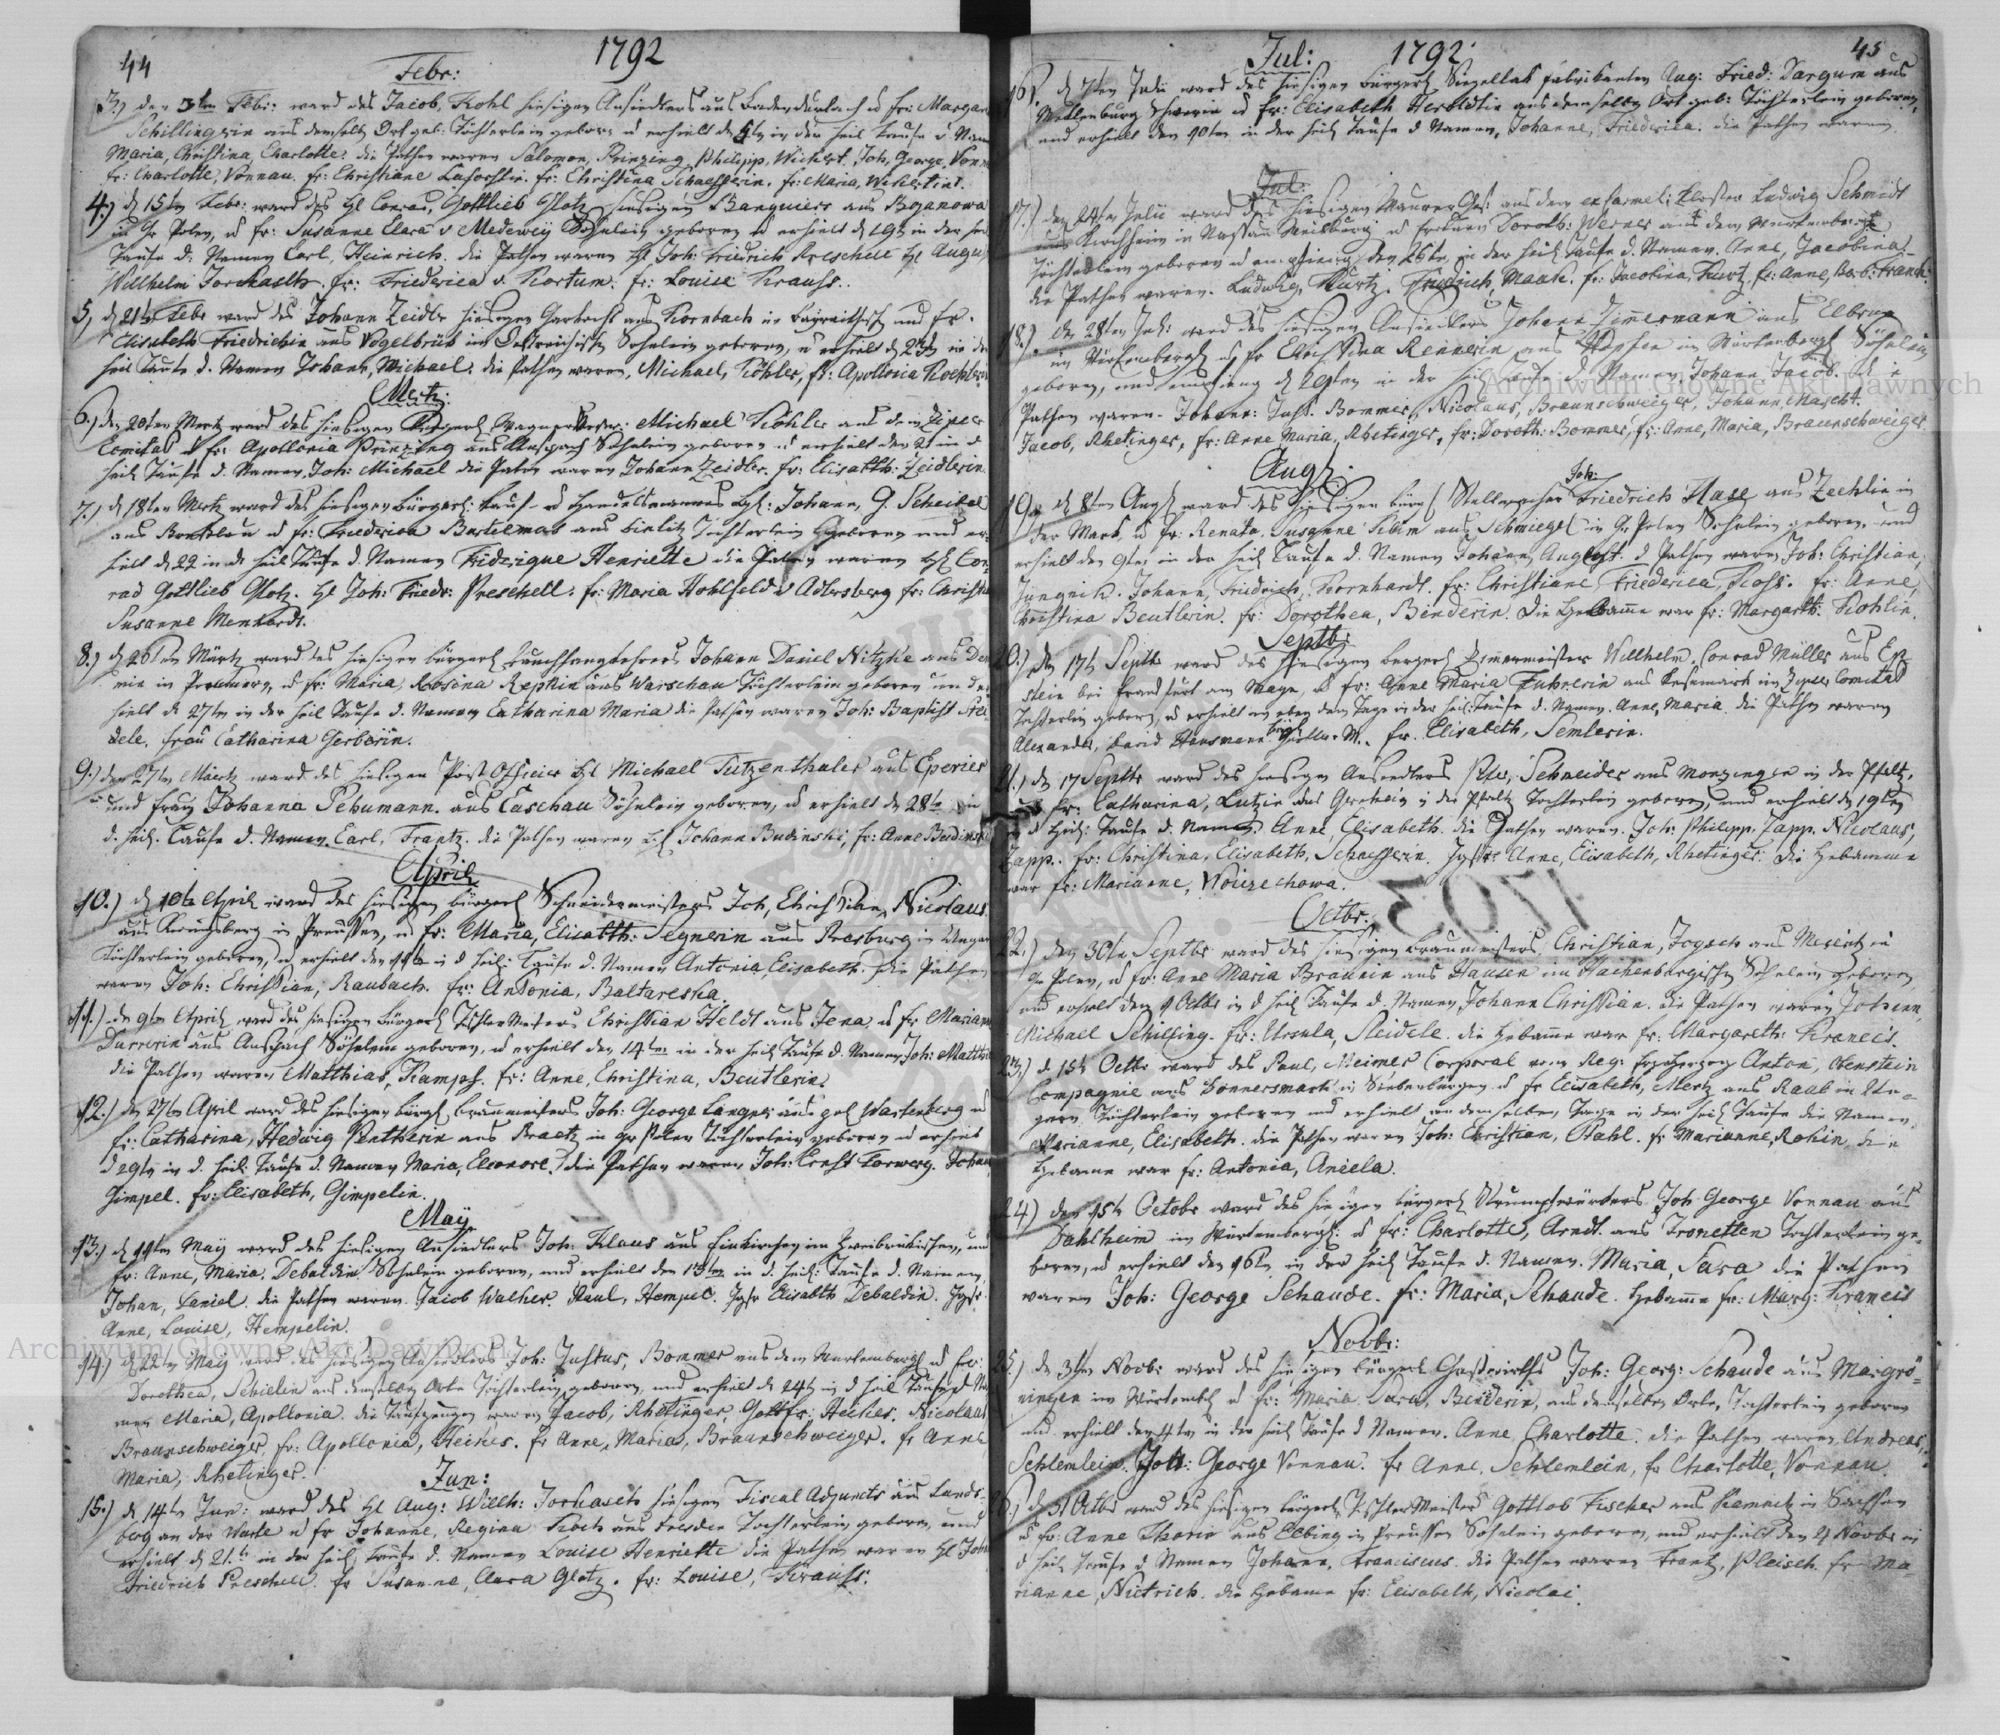 44
1792
Febr:
3.) den 3ten Febr: ward des Jacob, Kohl hiesigen Ansiedlers aus Badendurlach u fr: Margar
Schillingerin aus demselb Ort geb: Töchterlein gebor u erhielt d 5t in der heil Taufe d Nam
Maria, Christina, Charlotte: die Pathen waren Salomon, Prinzing, Philipp, Wickert. Joh, George, Vonn
fr: Charlotte, Vonnau. fr: Christiane fr: Christina Schaefferin. fr: Maria, Wickertin.
4.) d 15ten Febr: ward des H Conrad, Gottlieb Glotz, hiesigen Banquiers aus Bojanowa
in Gr Polen, u fr: Susanne Clara v Medewey Söhnlein geboren u erhielt d 19t in der heil
Taufe d: Namen Carl, Heinrich. die Pathen waren H Joh: Friedrich Preschell H August
Willhelm fr: Friederica v. Kortum. fr: Louise Krauss.
5, d 21t Febr ward des Johann Zeidler hiesigen aus Kornbach im und fr.
Elisabeth Friedrichin aus Vogelbrück im Söhnlein geboren, u erhielt d in der
heil Taufe d. Namen Johann, Michael. die Pathen waren, Michael, Köhler, fr: Apollonia Koehlerin
Mertz:
6.) den 20ten Mertz ward des hiesigen Michael Köhler aus dem Zipser
Comitas u fr: Apollonia Prinzing aus Anspach Söhnlein geboren u erhielt den 21 in d
heil Taufe d. Namen, Joh: Michael die Paten waren Johann Zeidler. fr: Elisabth: Zeidlerin
7.) d 18ten Mertz ward des hiesigen bürgerl: Kauf- u Handelsmannes H: Johann, G. Scheibel
aus Breslau u fr: Friederica Bartelmas aus Bielitz Töchterlein geboren und er
hielt d 22 in d heil Taufe d. Namen Fridrique Henriette die Paten waren H Con
rad Gottlieb Glotz. H Joh: Friedr: Preschell: fr: Maria Hohlfeld v Adlersberg fr: Christi
Susanne
8.) d 26ten Märtz ward des hiesigen bürgerl Johann Daniel Nitzke aus De
min in Pommern, u fr: Maria, Rosina Repkin aus Warschau Töchterlein geboren und er
hielt d 27ten in der heil Taufe d. Namen Catharina Maria die Pathen waren Joh: Baptist
dele. frau Catharina Gerberin.
9.) den 27ten Märtz ward des hiesigen Post Officier H Michael Tutzenthaler aus Eperies
und frau Johanna Schumann. aus Caschau Söhnlein geboren, u erhielt d 28t in
d. heil. Taufe d. Namen Carl, Frantz. die Pathen waren H Johann Budinski, fr: Anne Budinski
April
10.) d 10te April ward des hiesigen bürgerl Schneidermeisters Joh, Christian, Nicolaus
aus Königsberg in Preussen, u fr: Maria, Elisabth: Segnerin aus Presburg in Ungar
Töchterlein geboren, u erhielt den in d heil: Taufe d. Namen Antonia, Elisabeth. die Pathen
waren Joh: Christian, Raubach. fr: Antonia, Baltareska.
11.) den 9ten April ward des hiesigen bürgerl Tischler Meisters Christian Heldt aus Jena u fr Mariann
Durrerin aus Anspach Söhnlein geboren, u erhielt den 14ten in der heil Taufe d. Namen, Joh: Matth
die Pathen waren Matthias, Kampf. fr: Anne, Christina, Beutlerin.
12.) den 27ten April ward des hiesigen bürgl Braumeisters Joh: George Langner aus Wartenberg u
fr: Catharina, Hedwig Pentherin aus Braetz in gr Polen Töchterlein geboren u erhielt
d 29tn in d. heil: Taufe d. Namen Maria, Eleonore. die Pathen waren Joh: Ernst Forwerg. Johan
Gimpel. fr: Elisabeth, Gimpelin.
May
13.) d 11ten May ward des hiesigen Ansiedlers Joh: Klaus aus im Zweibrückischen, und
fr: Anne, Maria. Debaldin Söhnlein geboren, und erhielt den 13ten in d. heil: Taufe d. Namen,
Johan, Daniel. die Pathen waren. Jacob Walker. Paul, Hempel. Jgfr Elisabth Debaldin. Jgfr.
Anne, Louise, Hempelin.
14.) d 22ten May ward des hiesigen Ansiedlers Joh: Justus, Bommer aus dem Wurtembergl u fr:
Dorothea, aus demselben Orte Töchterlein geboren, und erhielt d 24t in d heil Taufe d Na
men Maria, Apollonia. die Taufzeugen waren Jacob, Rhetinger, Gottfr: Heines. Nicolaus
Braunschweiger, fr: Apollonia, Heines. fr Anne, Maria, Braunschweiger. fr Anne
Maria, Rhetinger.
Jun:
15.) d 14ten Jun: ward des H Aug: Willh: hiesigen Fiscal Adjuncts aus Lands
berg an der Warte u fr Johanne, Regina Koch aus Dresden Tochterlein geboren, und
erhielt d 21.t in der heil Taufe d. Namen Louise Henriette die Pathen waren H Joh:
Friedrich Preschell. fr Susanne, Clara Glotz. fr: Louise, Krauss.
45
1792
Jul:
16. d 7ten Julii ward des hiesigen bürgerl Siegellak fabrikanten Aug: Fried: Dargum aus
Meklenburg Schwerin u fr: Elisabeth aus demselben Ort geb: Töchterlein geboren,
und erhielt den 10ten in der heil Taufe d Namen, Johanne, Friederica. die Pathen waren.
Jul:
17.) den 24ten Julii ward des hiesigen Maurer Ges: aus dem Kloster Ludwig Schmidt
aus Kirchheim in Nassau Weilburg u Doroth: Werner aus dem Wurtenberg
Töchterlein geboren u empfieng den 26te in der heil Taufe d. Namen. Anne, Jacobina.
die Pathen waren. Ludwig, Kurtz. Friedrich, Maak. fr: Jacobina, Kurtz. fr: Anne, Barb: Frank.
18.) den 28ten Jul: ward des hiesigen Ansiedlers Johann Zimermann aus
im Würtenberg u fr Christina Rennerin aus in Würtenberg Söhnlein
geboren, und empfieng d 29ten in der heil Taufe d Namen Johann Jacob. die
Pathen waren. Johann: Just: Bommer, Nicolaus, Braunschweiger, Johann,
Jacob, Rhetinger, fr: Anne Maria, Rhetinger, fr: Doroth: Bommer, fr: Anne, Maria, Braunschweiger
Aug:
Joh:
19. d 8ten Aug ward des hiesigen bürgl Stellmacher Friedrich Hase aus Zechlin in
der Mark, u fr: Renata, Susanne aus Schmiegel in Gr Polen Söhnlein geboren, und
erhielt den 9ten in der heil Taufe d. Namen Johann, August. d Pathen waren Joh: Christian,
Jungnik. Johann, Friedrich, Kornhardt. fr: Christiane Friederica, Koss. fr: Anne,
Christina Beutlerin. fr: Dorothea, Benderin. Die Hebamme war fr: Margarth: Kohlin.
Septb:
20.) den 17t Septbr ward des hiesigen bürgerl Zimermeister Willhelm, Conrad Müller aus Ep
stein bei Frankfurt am Mayn, u fr: Anne Maria Fuhrerin aus Kesemark im Zipser Comitat
Töchterlein gebor, u erhielt an eben dem Tage in der heil: Taufe d. Namen. Anne, Maria die Pathen waren
Alexander, David Hansmann M. fr. Elisabeth, Semlerin.
21.) den 17 Septbr ward des hiesigen Ansiedlers Schneider aus Monzingen in der Pfaltz.
und fr: Catharina, Lutzin aus in der Pfaltz Tochterlein geboren, und erhielt d 19ten
in d heil: Taufe d. Namen. Anne, Elisabeth. die Pathen waren. Joh: Philipp, Zapp. Nicolaus,
Zapp. fr: Christina, Elisabeth, Schaefferin. Jgfr: Anne, Elisabeth, Rhetinger. die Hebamme
war fr: Marianne, Woizechowa.
Octbr.
22.) den 30ten Septbr ward des hiesigen Braumeisters, Christian, Jogsch aus Meseritz in
Gr Polen, u fr: Anne Maria Braunin aus Hausen im Hachenburgischen Söhnlein geboren
und erhielt den 1 Octbr in d heil Taufe d. Namen, Johann Christian. die Pathen waren Johann,
Michael Schilfing. fr: Ursula, Steidele. die Hebamme war fr: Margareth: Kraneis.
23.) d 15t Octbr ward des Paul, Meimer Corporal vom Reg: Erzherzog Anton, Obenstein
Compagnie aus Donnersmark in Siebenbürgen u fr Elisabeth, Mertz aus Raab in Un-
gern Töchterlein geboren und erhielt an demselben Tage in der heil Taufe die Namen
Marianne, Elisabeth. die Pathen waren Joh: Christian, Stahl. fr Marianne, Rohin, die
Hebame war fr: Antonia, Aniela.
24.) den 15t Octobr ward des hiesigen bürgerl Strumpfwürkers Joh George Vonnau aus
Dahlheim im Würtemberg: u fr: Charlotte, Arndt. aus Tochterlein ge-
boren, u erhielt den 16t in der heil Taufe d. Namen. Maria, Sara die Pathen
waren Joh: George Schaude. fr: Maria, Schaude. Hebamme fr: Marg: Kraneis
Novbr:
25.) den 3ten Novb: ward des hiesigen bürgerl Gastwirths Joh: Georg: Schaude aus Maigrö-
ningen im Würtemb u fr: Maria, Sara, Benderin, aus demselben Orte, Tochterlein geboren
und erhielt den 4tn in der heil Taufe d Namen. Anne, Charlotte. die Pathen waren Andreas,
Schlemlein. Joh: George Vonnau. fr Anne, Schlemlein, fr Charlotte, Vonnau.
26.) d 31 Octbr ward des hiesigen bürgerl Tischler Meisters Gottlob Fischer aus Kemnitz in Sachsen
u fr: Anne aus Elbing in Preussen Söhnlein geboren, und erhielt den 4 Novbr in
d heil Taufe d Namen Johann, Franciscus. die Pathen waren Frantz, Pleisch. fr Ma-
rianne, Nietrich. die Hebame fr: Elisabeth, Nicolai.
Archiwum Główne Akt Dawnych
Archiwum Główne Akt Dawnych